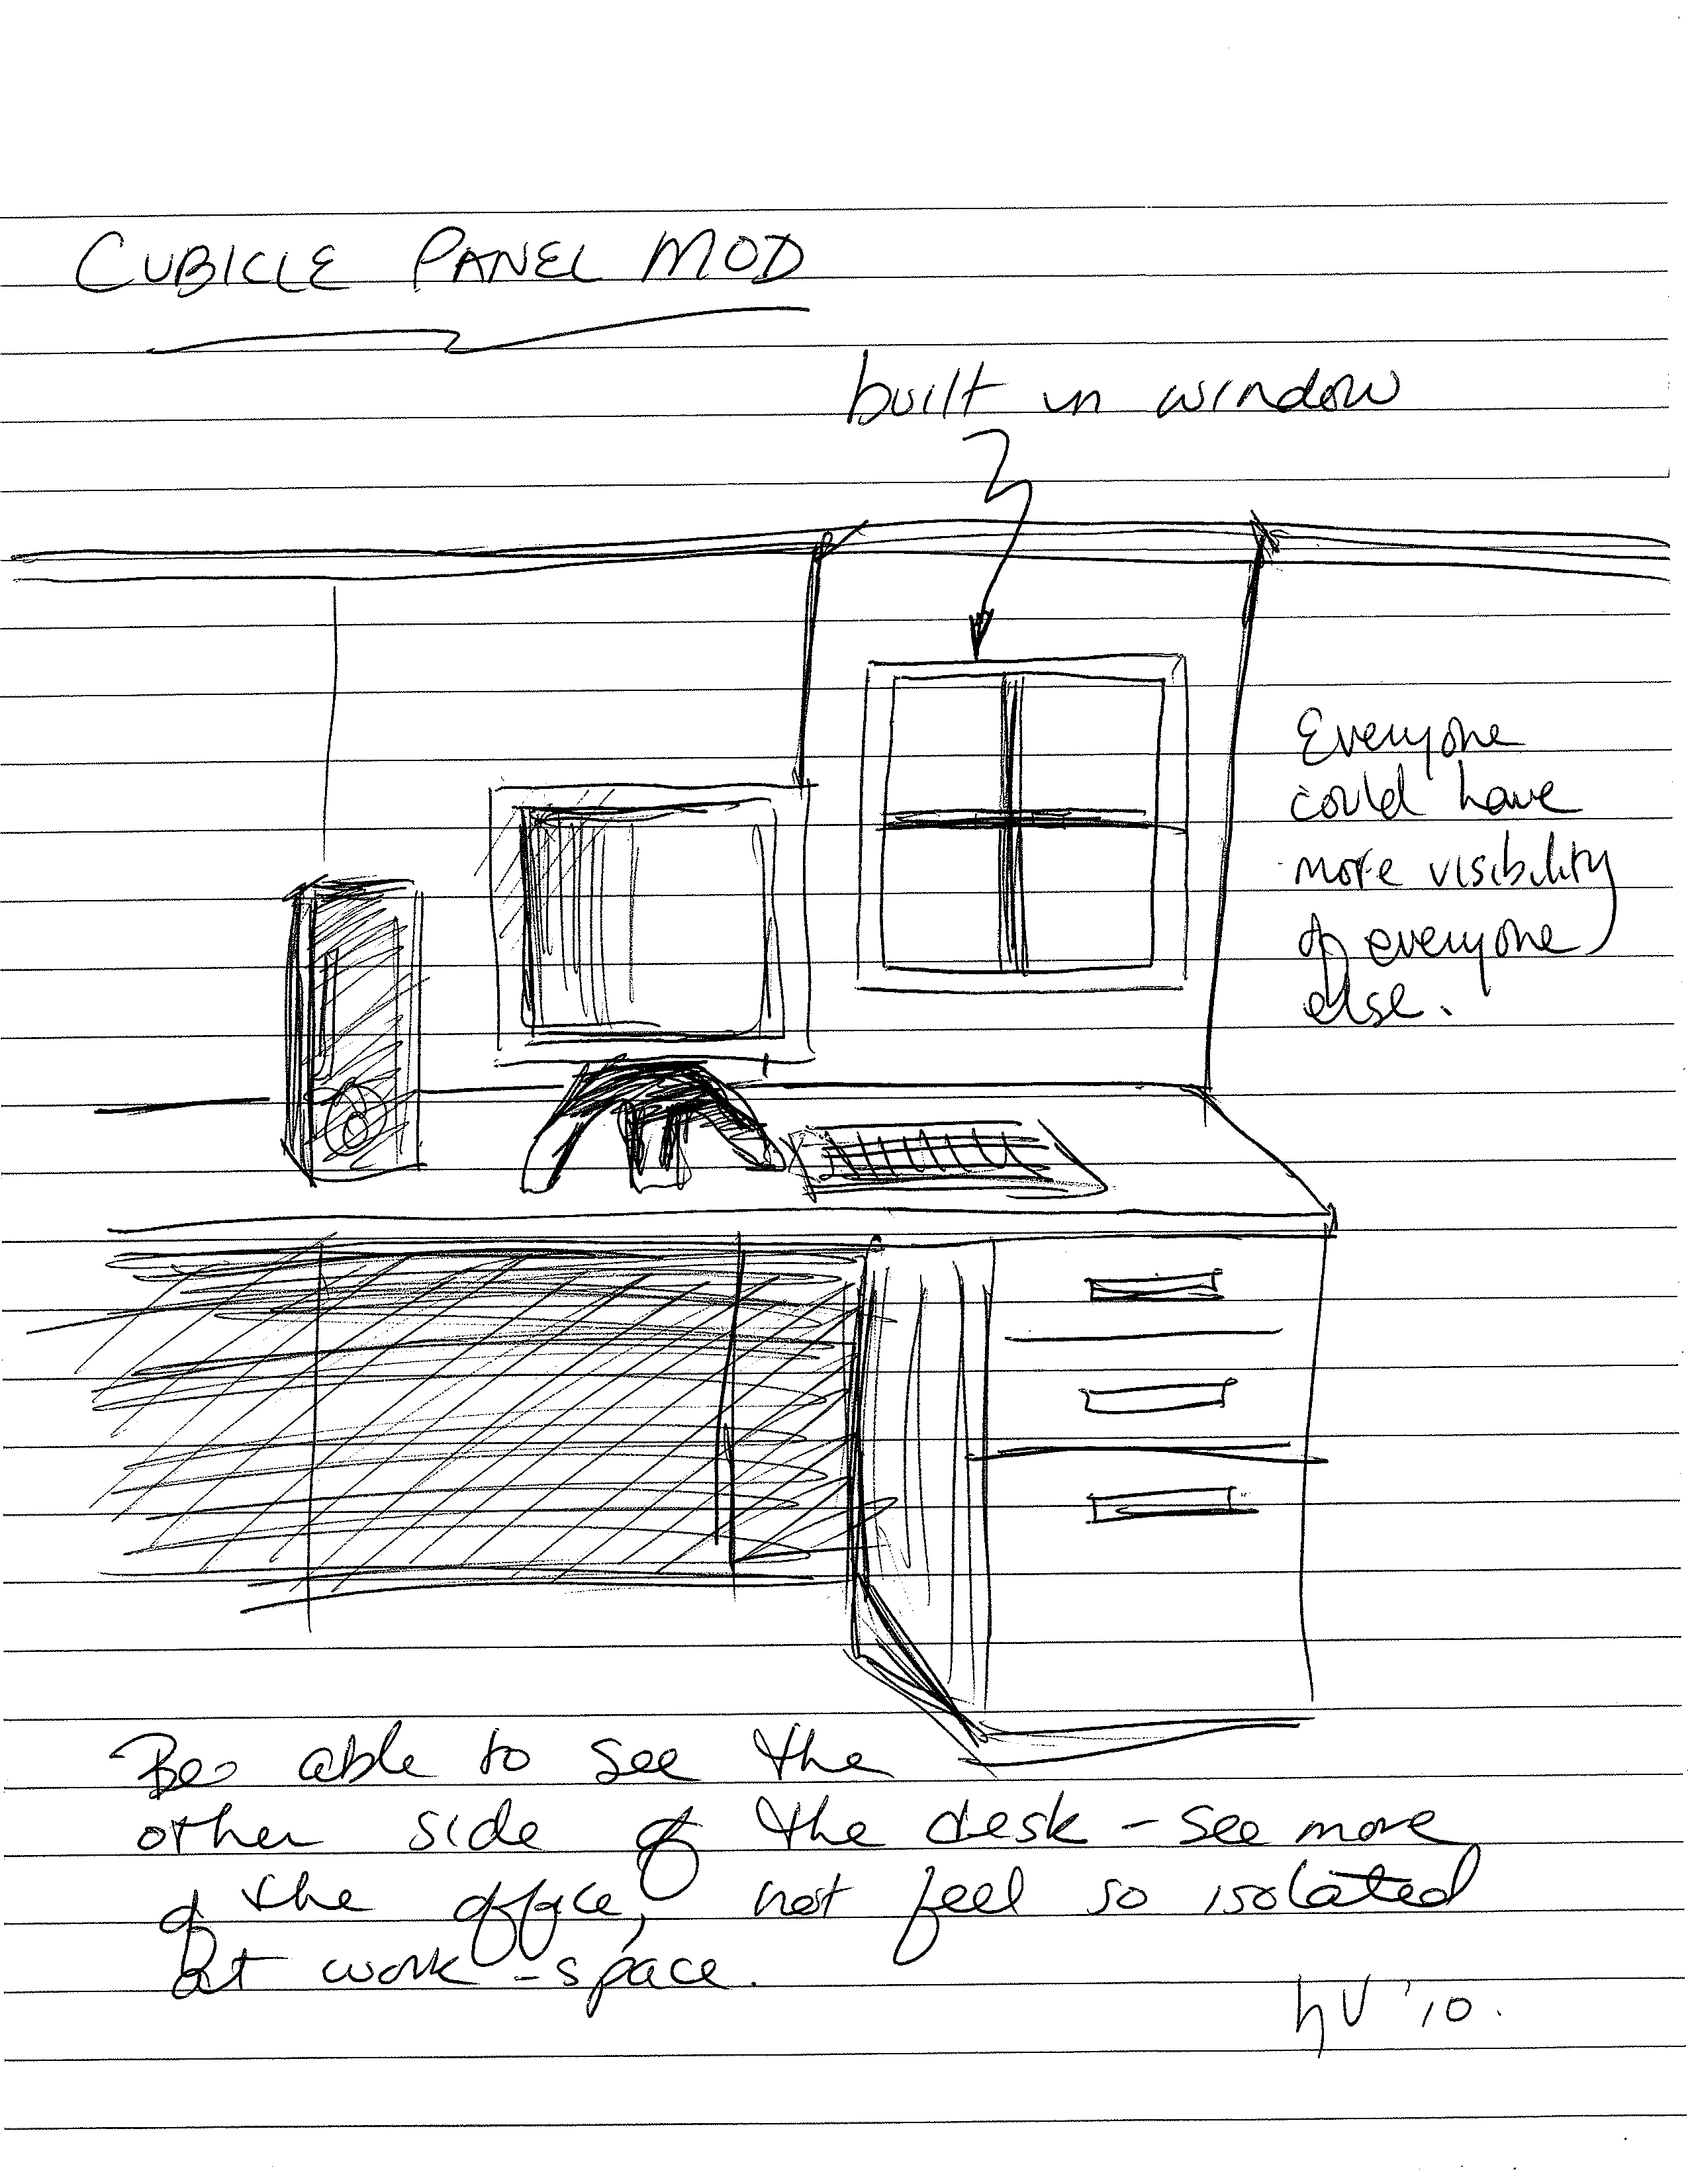 CUBICLE PANEL MOD
built in window
Everyone
could have
more visibility
of everyone
else.
Be able to see the
other side of the desk - see more
of the office, not feel so isolated
at work-space.
hV '10.